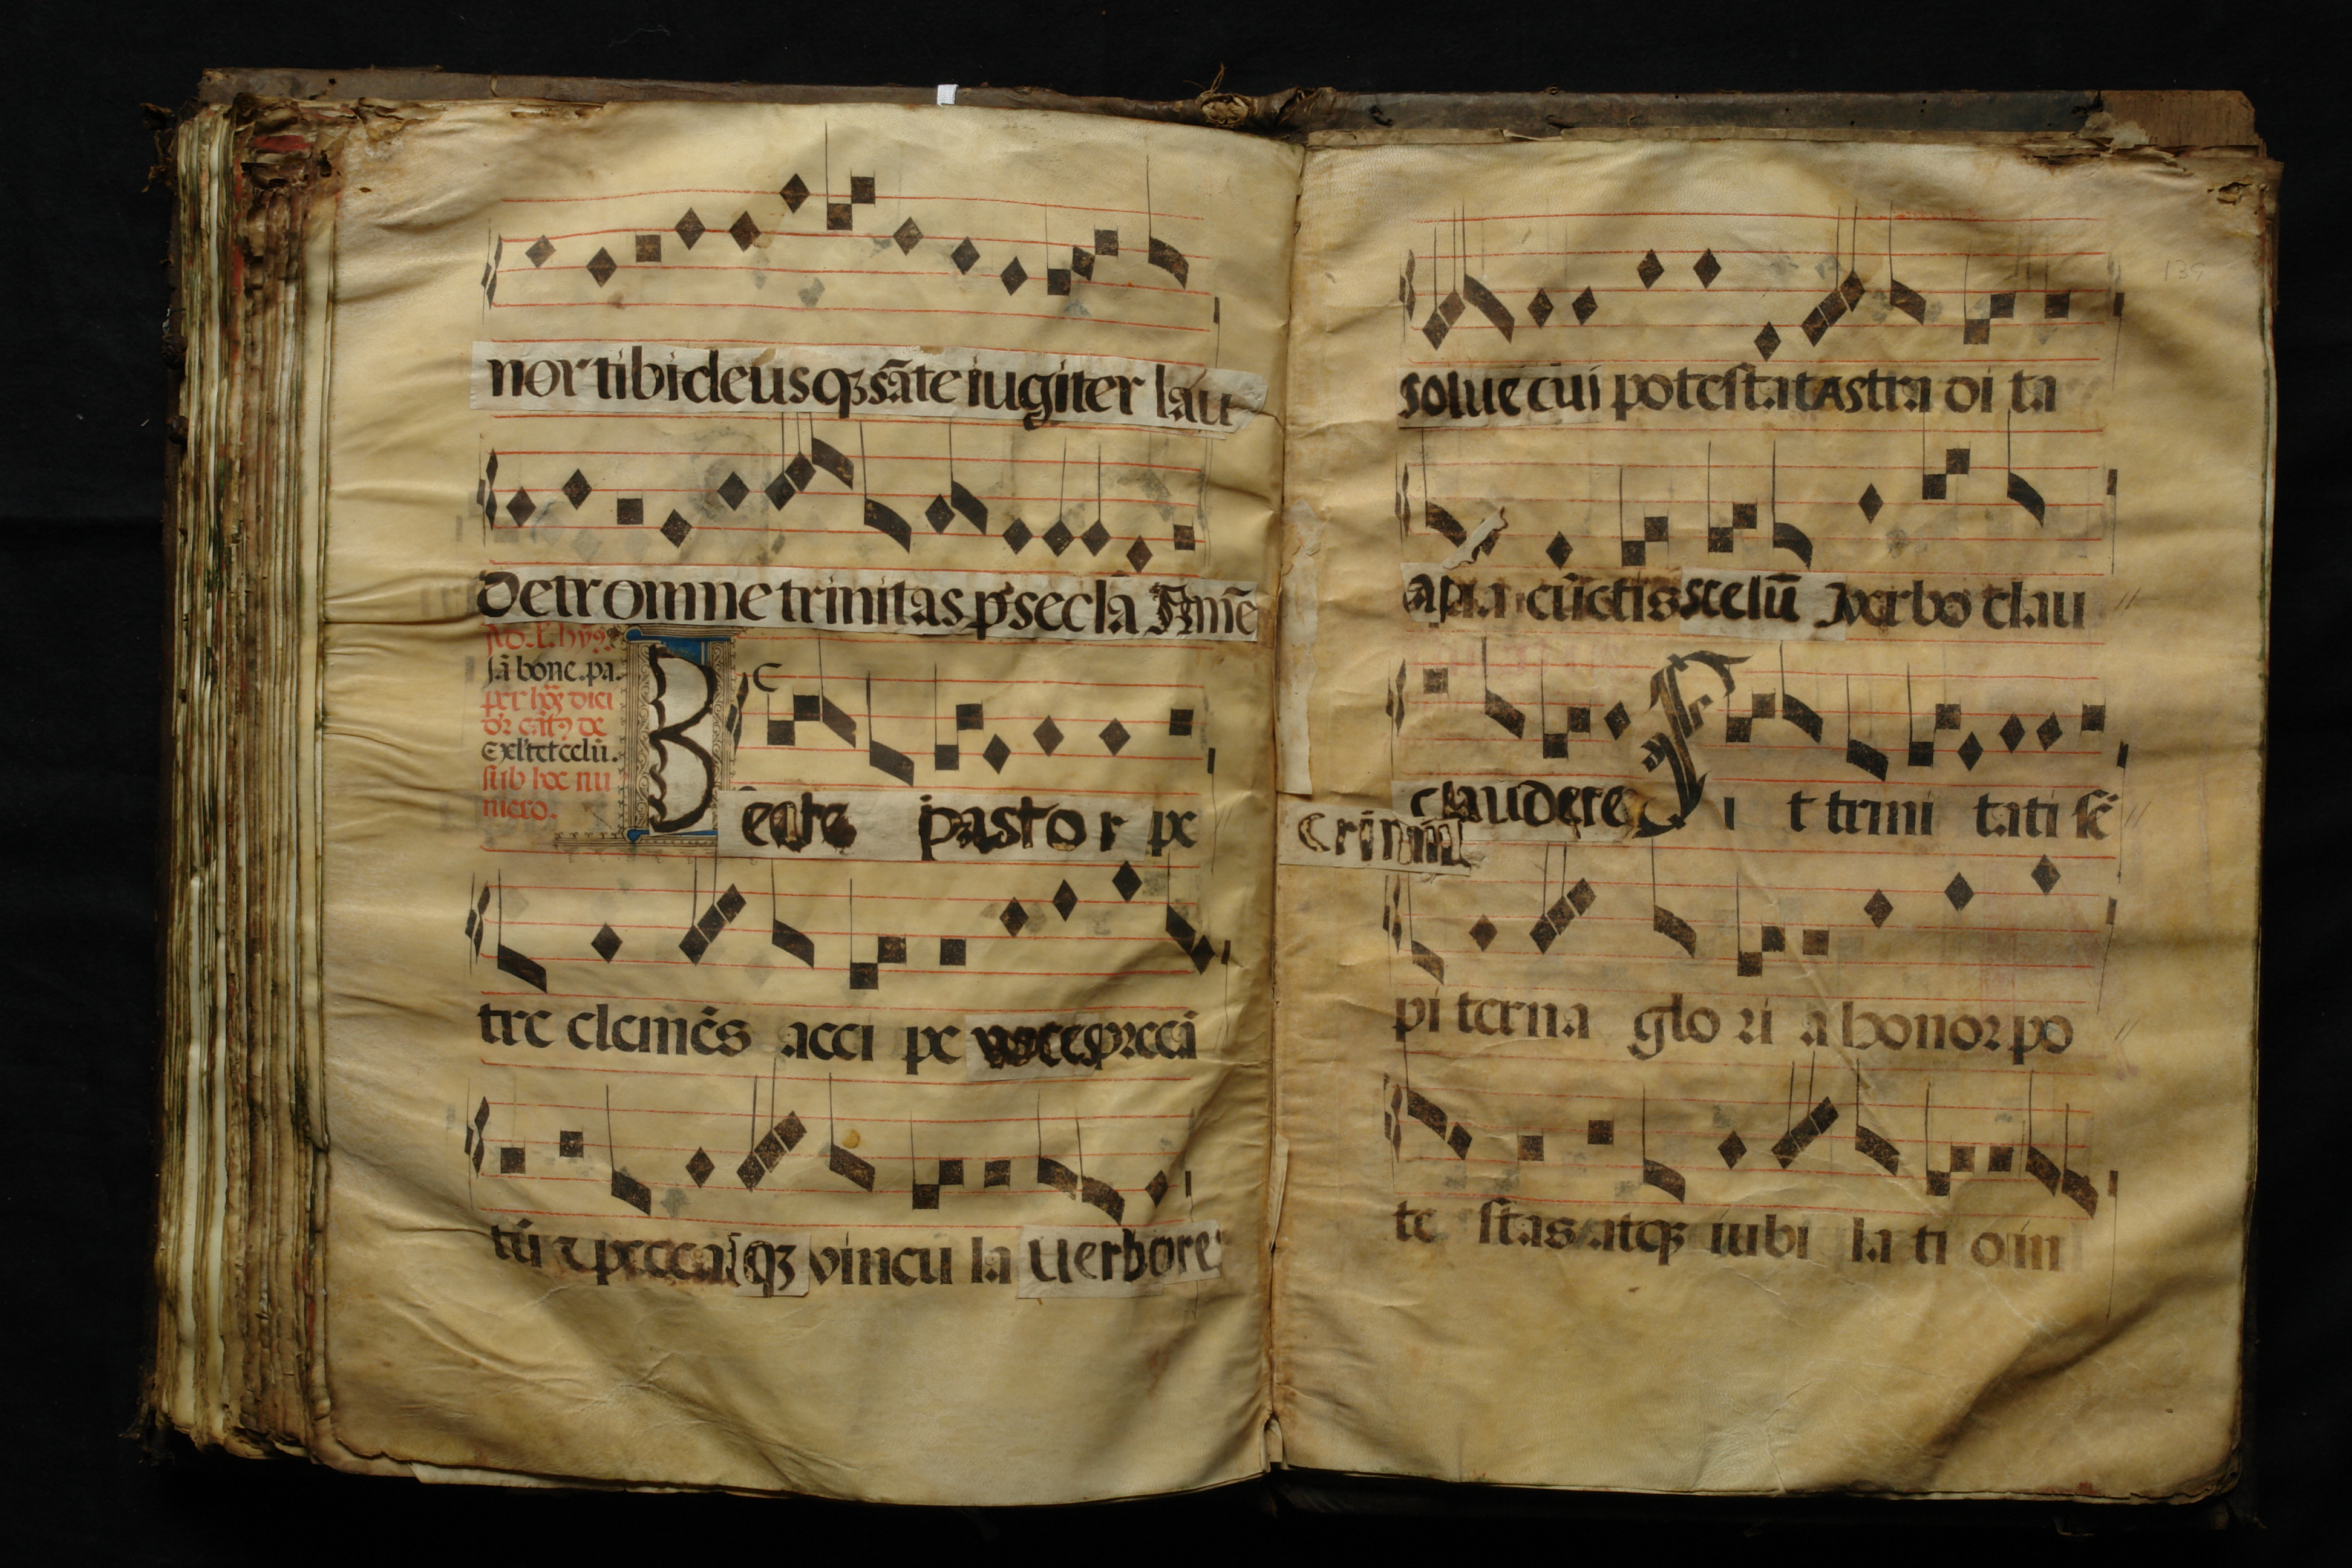 nor tibi deus qꝫ sāte iugiter lau
detr omne trinitas p̱ secla Amē
Ad. L. hys
Iā bone. pa.
per hoꝫ dici
Exl'tet celū.
sub hoc nu
mero.
C
B
eate pastor pe
tre clemēs acci pe voces precā
tū ⁊ peccati qꝫ vincu la Uerbo re
139
solue cui potestatastra oi ta
cūctis scelū verbo clau
claudere S i t trini tati sē
crimīa
pi terna glo ri a honor po
te stas atqꝫ iubi la ti o in